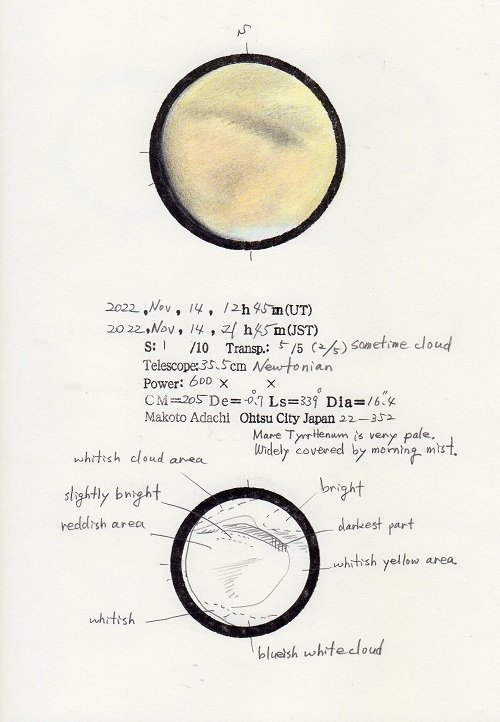 S
2022, Nov, 14, 12h45m(UT)
2022, Nov, 14, 21h45m(JST)
S: 1 /10 Transp.: 5/5 (2/5) sometime cloud
Telescope: 35.5cm Newtonian
Power: 600 × ×
CM=205 De=-0.°7 Ls=339° Dia=16."4
Makoto Adachi Ohtsu City Japan 22-352
Mare Tyrrhenum is very pale.
Widely covered by morning mist.
whitish cloud area
slightly bright
bright
reddish area
darkest part
whitish yellow area
whitish
blueish white cloud